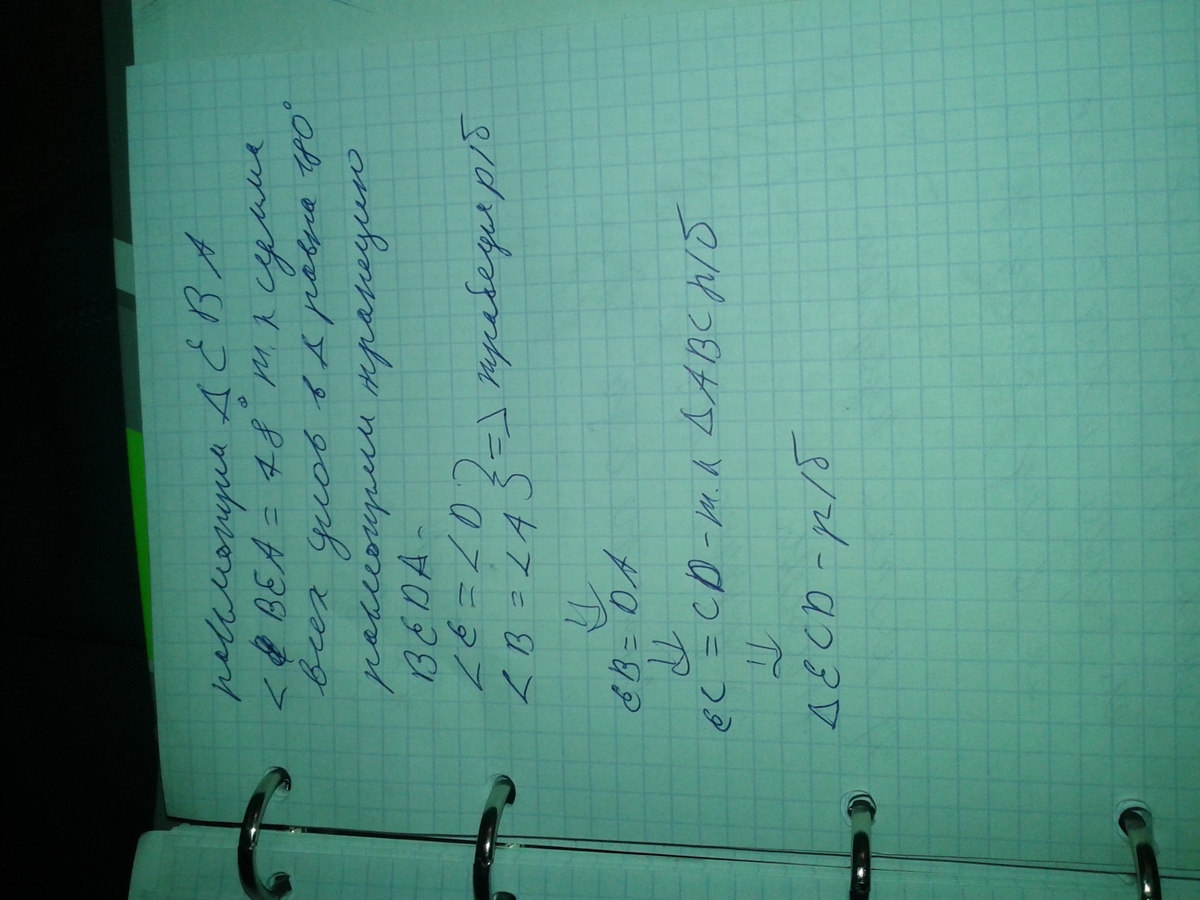 посмотрим Δ E B A
∠ BEA = 78° т.к сумма
всех углов в Δ равна 180°
посмотрим трапецию
BEDA -
∠E = ∠D } => трапеция р/б
∠B = ∠A
⇓
EB = DA
⇓
EC = CD - т.к ΔABC р/б
⇓
ΔECD - р/б